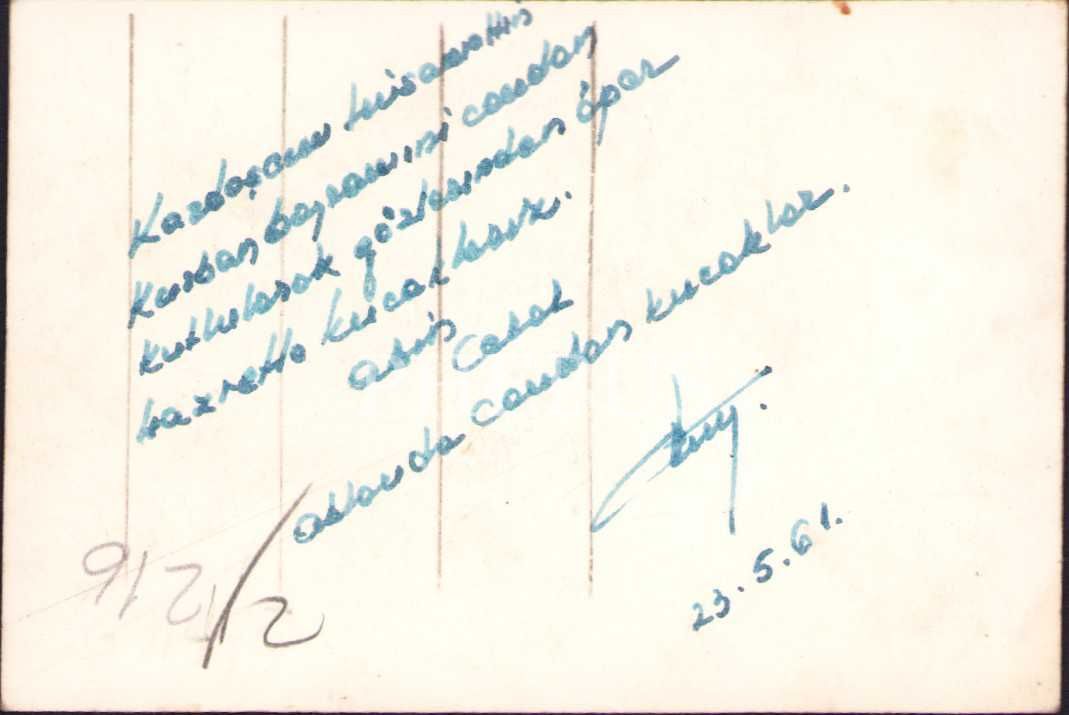 Kardaşım Hüsamettin
Kurban bayramını candan
kutlularak gözlerinden öper
hazretle kucaklarız.
abin
Celal
ablanda candan kucaklar.
23.5.61.
2